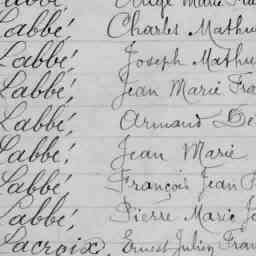 Labbé, Charles Mathu
Labbé, Joseph Mathu
Labbé, Jean Marie Fra
Labbé, Armand De
Labbé, Jean Marie
Labbé, François Jean
Labbé, Pierre Marie
Lacroix, Ernest Julien Fran